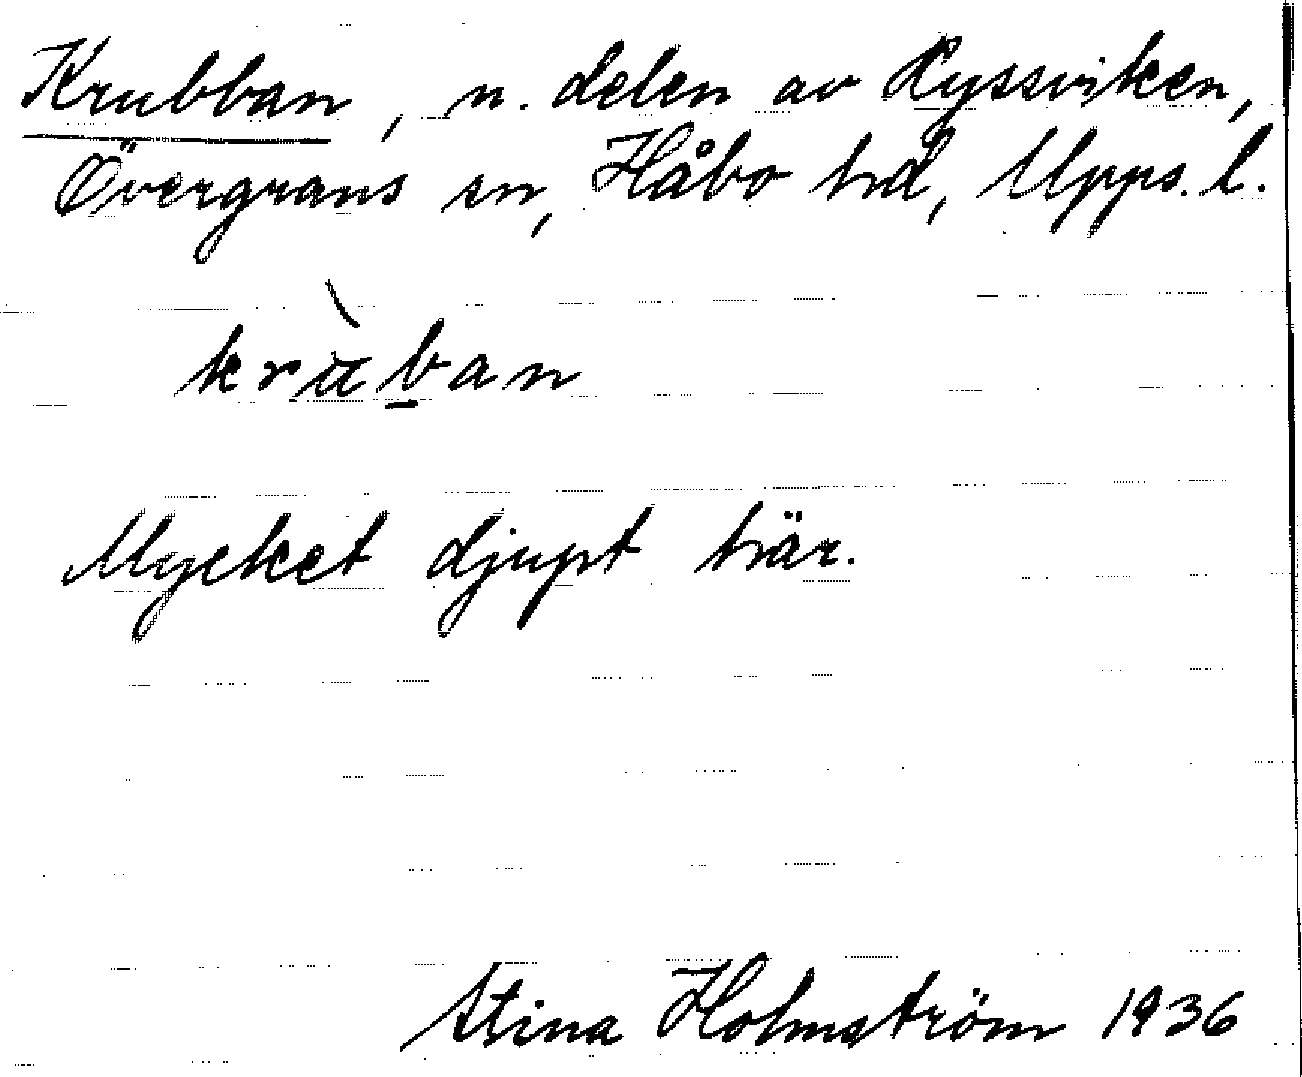 Krubban, n. delen av Ryssviken,
Övergrans sn, Håbo hd, Upps. l.
krùban
Mycket djupt här.
Stina Holmström 1936